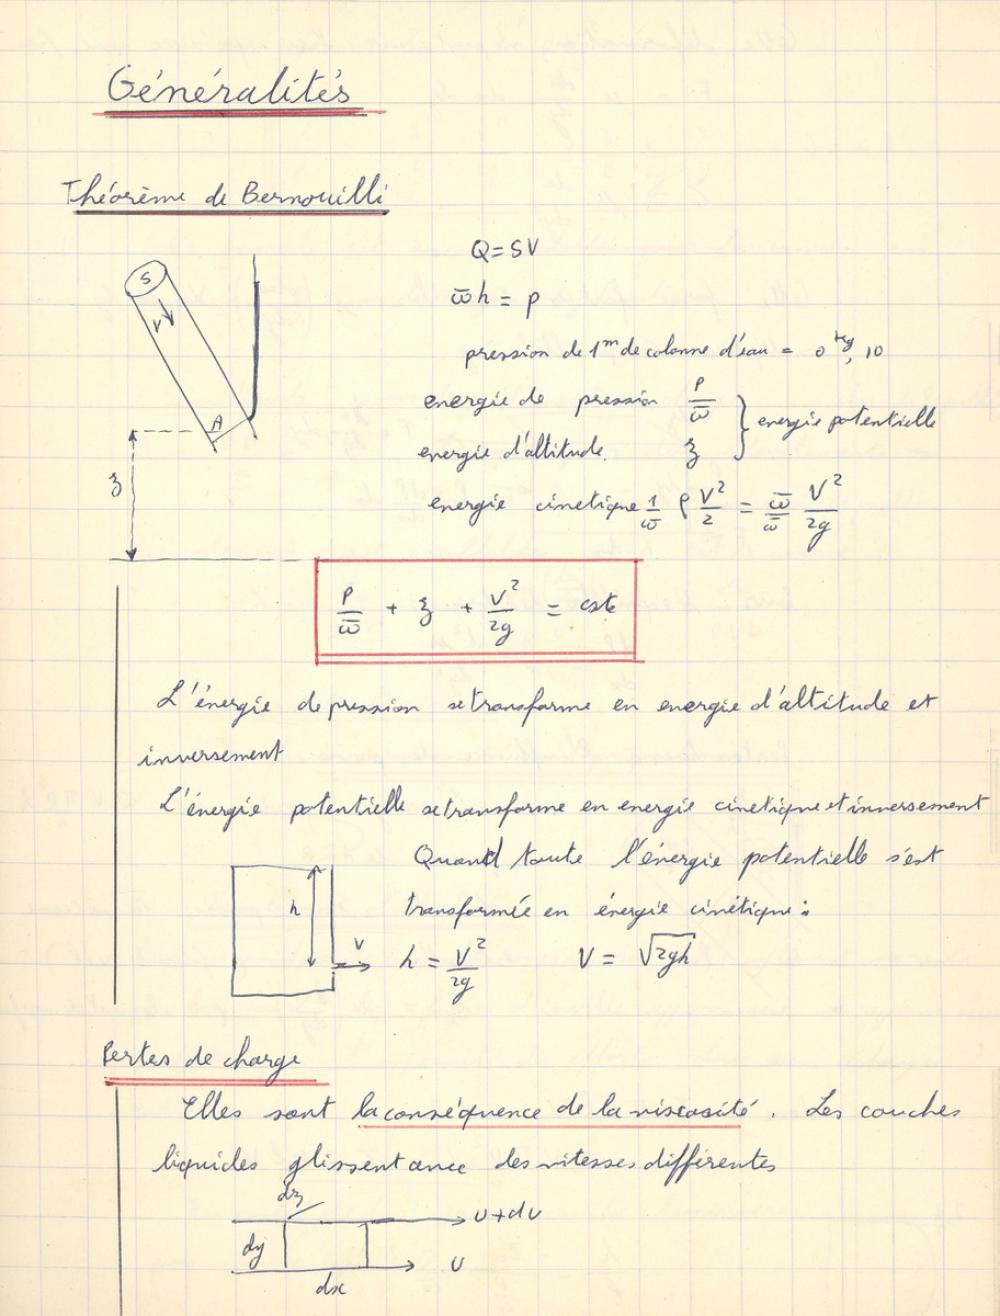 Généralités
Théorème de Bernouilli
S
V
A
z
Q = SV
ϖ h = p
pression de 1m de colonne d'eau = 0 kg, 10
energie de pression P/ϖ
energie d'altitude. z
} energie potentielle
energie cinetique 1/ϖ ρ V²/2 = ϖ/ϖ V²/2g
P/ϖ + z + V²/2g = cste
L'énergie de pression se transforme en energie d'altitude et
inversement
L'énergie potentielle se transforme en energie cinetique et inversement
Quand toute l'énergie potentielle s'est
transformée en énergie cinétique :
h
V
h = V²/2g V = √2gh
Pertes de charge
Elles sont la conséquence de la viscosité. Les couches
liquides glissent avec des vitesses différentes
dz
U + dU
dy
U
dx